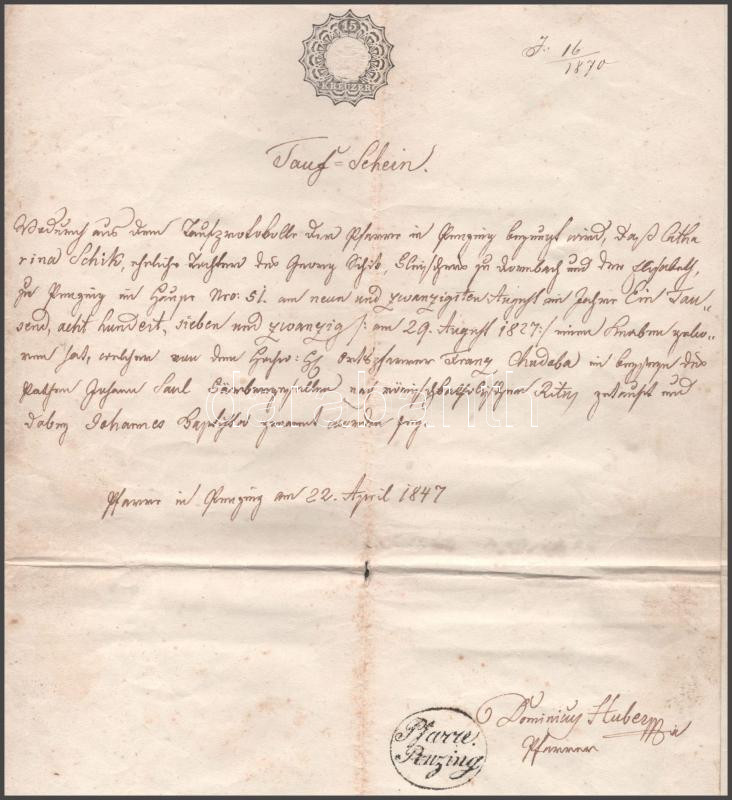 15
KREUZER
F: 16/1870
Tauf=Schein.
Wodurch aus dem Taufprotokolle der Pfarre in Penzing bezeugt wird, daß Catha-
rina Schik, eheliche Tochter des Georg Schik, zu Dornbach und der Elisabeth,
zu Penzing im Hause Nro: 51. am neun und zwanzigsten August im Jahre Ein Tau-
send, acht hundert, sieben und zwanzig /: am 29. August 1827:/ einen Knaben gebo-
ren hat, welcher von dem Ortspfarrer Franz Chadaba in beyseyn des
Pathen Johann Paul nach römischkatholischen Ritus getauft und
dabey Johannes Baptista genannt worden sey.
Pfarre in Penzing am 22. April 1847
Pfarre
Penzing
Dominicus Huber
Pfarrer
darabanth